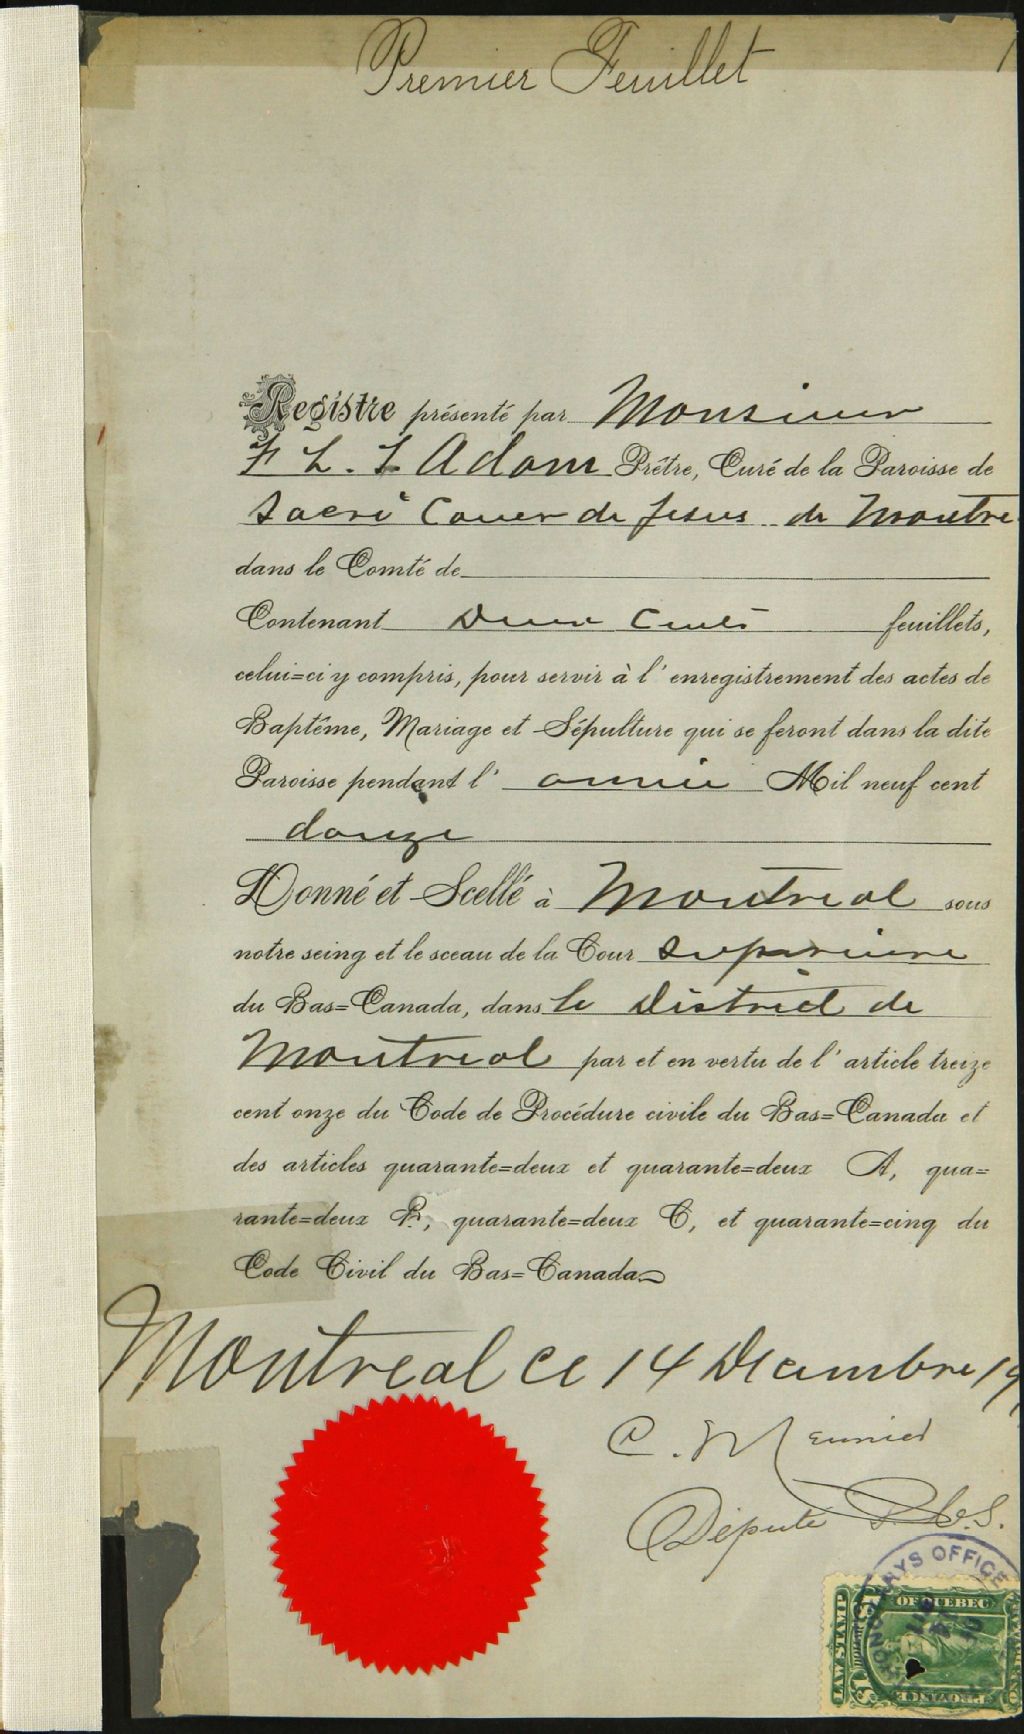 Premier Feuillet
Registre présenté par Monsieur
F L. T. Adam Prêtre, Curé de la Paroisse de
Sacré Coeur de Jesus de Montre
dans le Comté de
Contenant Deux Cents feuillets,
celui=ci y compris, pour servir à l'enregistrement des actes de
Baptême, Mariage et Sépulture qui se feront dans la dite
Paroisse pendant l' année Mil neuf cent
douze
Donné et Scellé à Montreal sous
notre seing et le sceau de la Cour Superieure
du Bas=Canada, dans le District de
Montreal par et en vertu de l'article treize
cent onze du Code de Procédure civile du Bas=Canada et
des articles quarante=deux et quarante=deux A, qua=
rante=deux B, quarante=deux C, et quarante=cinq du
Code Civil du Bas=Canada
Montreal ce 14 Decembre 19
C. Meunier
Député P.C.S.
OFFICE
LAW STAMP
OF QUEBEC
PROVINCE